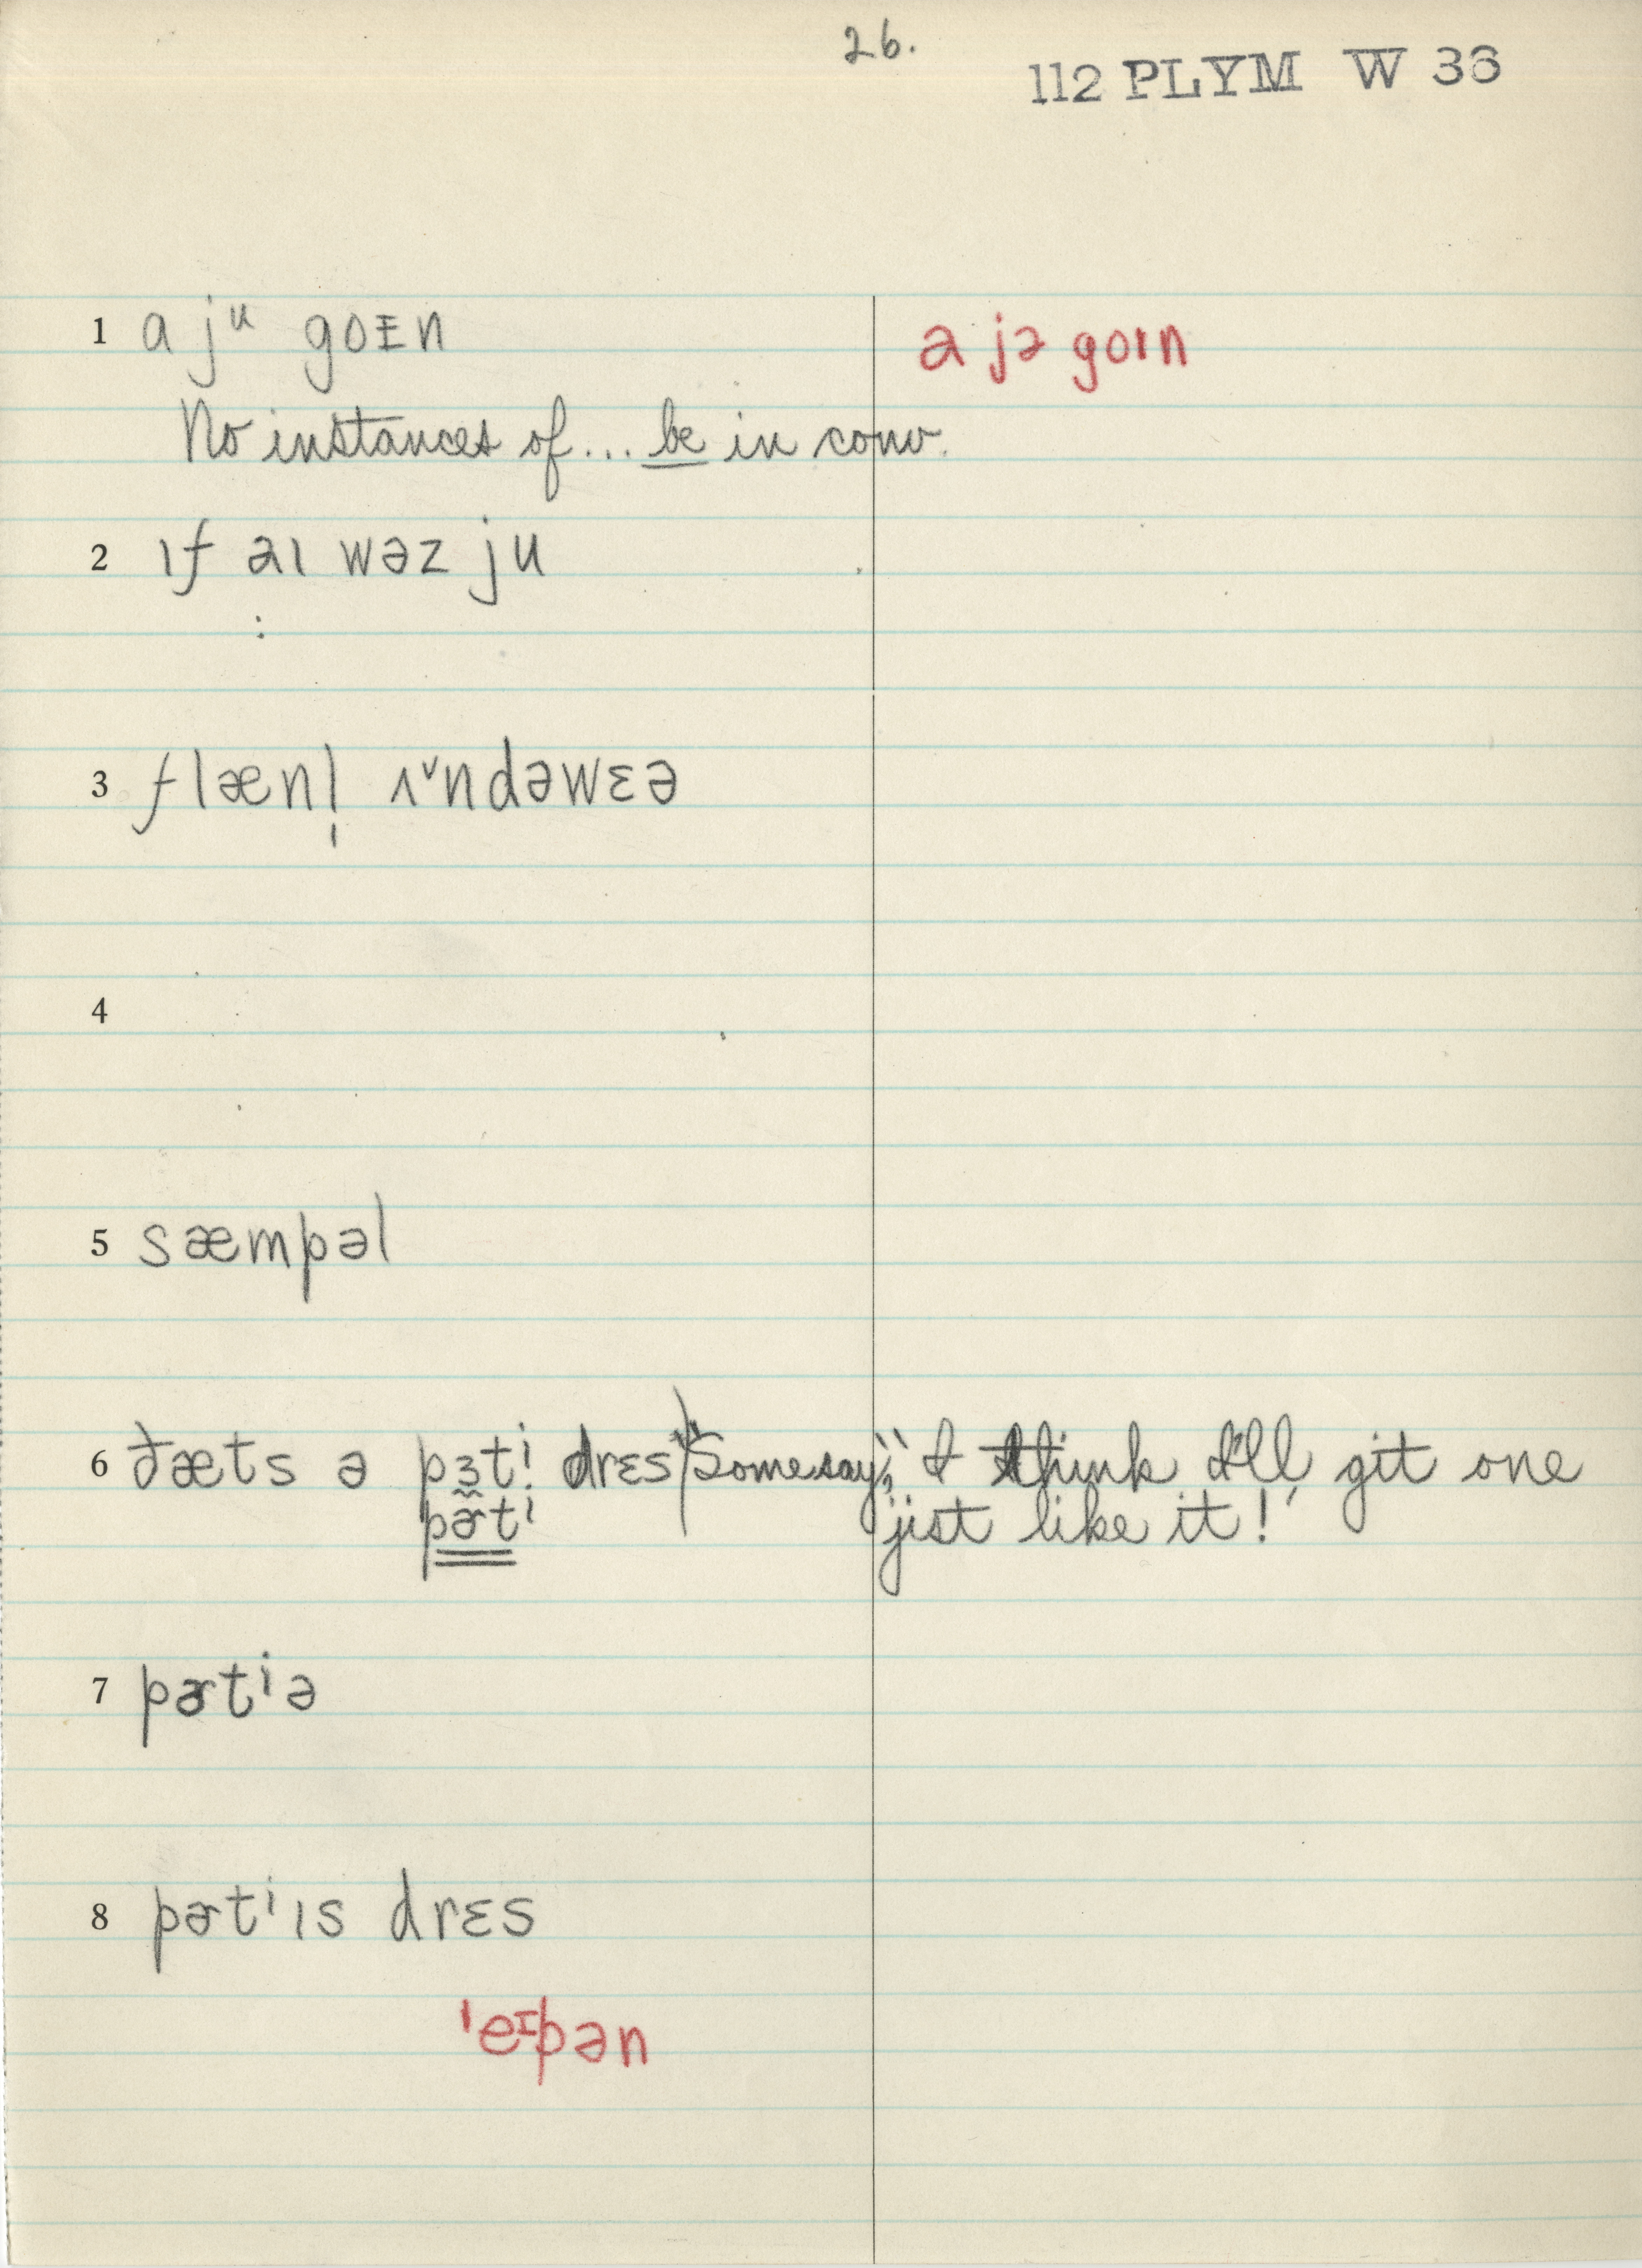 26.
112 PLYM W 36
1 a jᵘ goᵻn ɑ jə goɪn
No instances of... be in conv.
2 ɪf aɪ wəz ju
:
3 flænl̩ ʌ˅ndəwɛə
4
5 sæmpəl
6 ðæts ə pɜtⁱ drɛs "Some say," "I think I'll git one
pɚtⁱ jist like it!
7 pɚtⁱə
8 pɚtⁱɪs drɛs
ˈeᵻpən